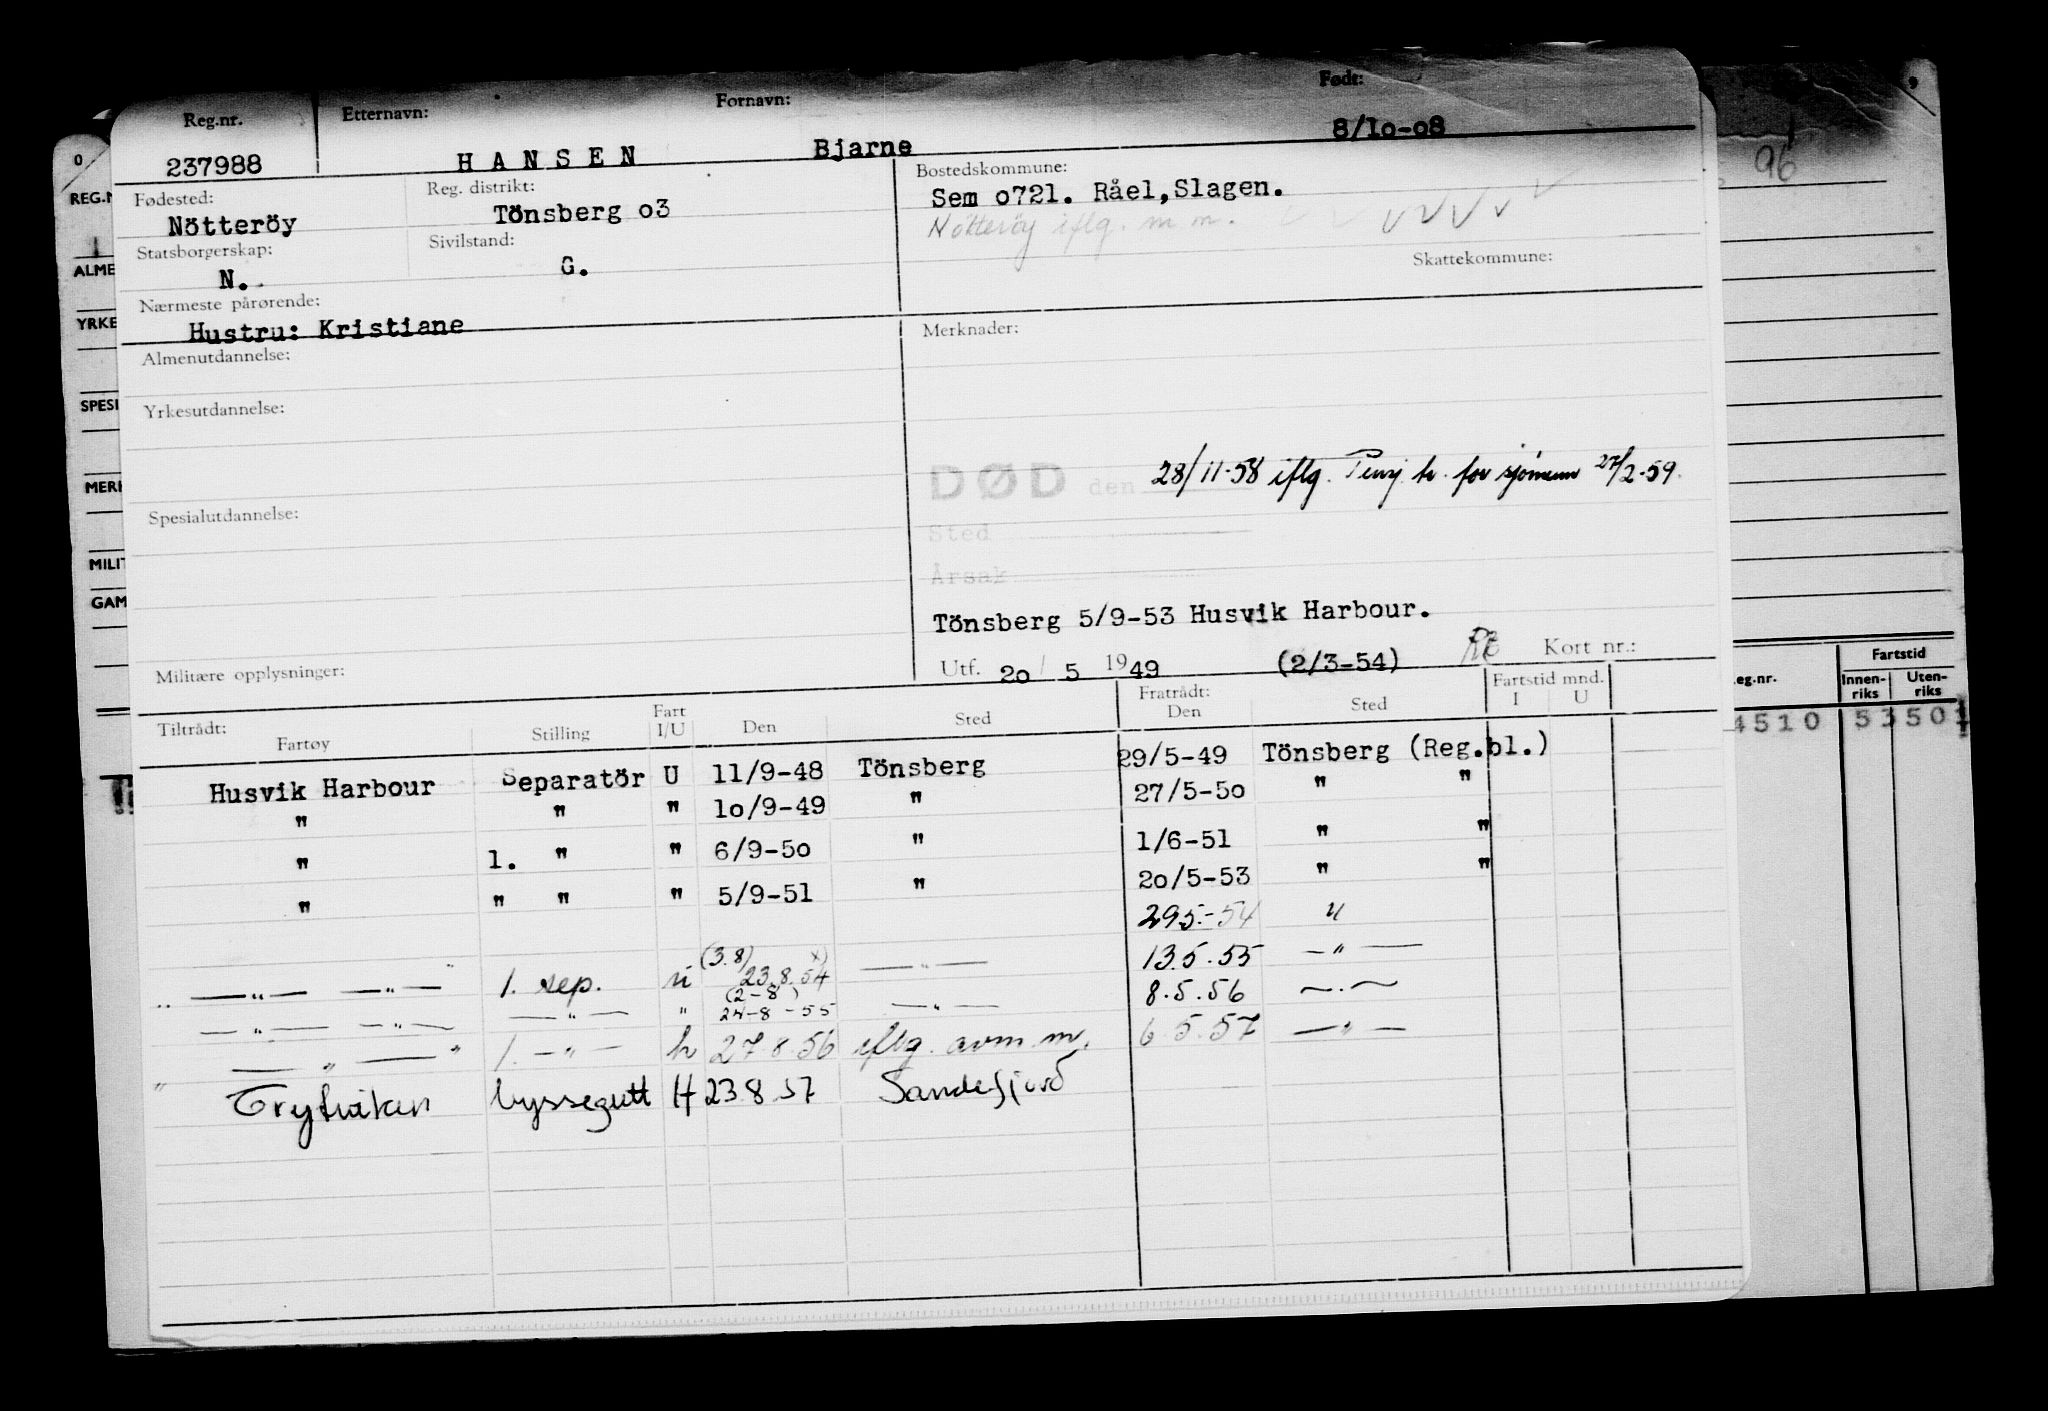 Reg.nr. Etternavn: Fornavn: Født:
237988 HANSEN Bjarne 8/10-08
Fødested: Reg. distrikt: Bostedskommune:
Nötteröy Tönsberg o3 Sem o721. Råel,Slagen.
Nötteröy iflg. m m.
Statsborgerskap: Sivilstand: Skattekommune:
N. G.
Nærmeste pårørende:
Hustru: Kristiane
Merknader:
Almenutdannelse:
Yrkesutdannelse:
DØD den 28/11-58 iflg. Pensj. tr. for sjömenn 27/2-59.
Spesialutdannelse:
Sted
Årsak
Tönsberg 5/9-53 Husvik Harbour.
Militære opplysninger: Utf. 2o/ 5 1949 (2/3-54) Kort nr.:
Tiltrådt: Fratrådt: Fartstid mnd.
Fartøy Stilling Fart I/U Den Sted Den Sted I U
Husvik Harbour Separatör U 11/9-48 Tönsberg 29/5-49 Tönsberg (Reg.bl.)
" " " 1o/9-49 " 27/5-5o " "
" 1. " " 6/9-5o " 1/6-51 " "
" " " " 5/9-51 " 2o/5-53 " "
29.5.-54 "
(3.8) x)
—"— —"— 1. sep. u 23.8.54 —"— 13.5.55 —"—
(2-8)
—"— —"— —"— " 24-8-55 —"— 8.5.56 —"—
—"— 1. —"— h 27.8.56 iflg. avm. m. 6.5.57 —"—
byssegutt H 23.8.57 Sandefjord
0
REG.N
ALME
YRKE
SPESI
MERK
MILIT
GAM
9
96
Fartstid
eg.nr. Innen-riks Uten-riks
4510 53501